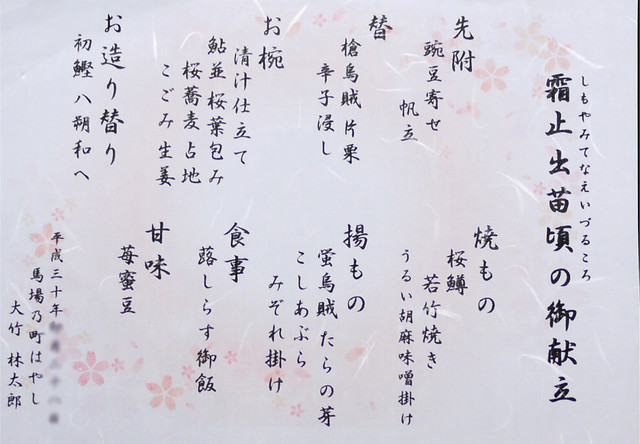 しもやみてなえいづるころ
霜止出苗頃の御献立
先附
豌豆寄せ
帆立
替
槍烏賊片栗
辛子浸し
お椀
清汁仕立て
鮎並桜葉包み
桜蕎麦占地
こごみ生姜
お造り替り
初鰹八朔和へ
焼もの
桜鱒
若竹焼き
うるい胡麻味噌掛け
揚もの
蛍烏賊たらの芽
こしあぶら
みぞれ掛け
食事
蕗しらす御飯
甘味
苺蜜豆
平成三十年
馬場乃町はやし
大竹 林太郎